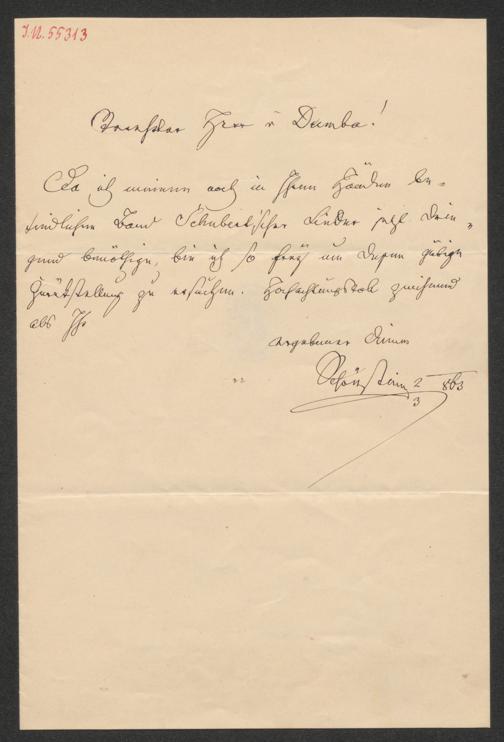 I.N. 55313
Verehrter Herr v Dumba!
Da ich meinen noch in Ihren Händen be-
findlichen Band Schubert'scher Lieder jetzt drin-
gend benöthige, bin ich so frey um deren gütige
Zurückstellung zu ersuchen. Hochachtungsvoll zeichnend
als Ihr
ergebener Diener
Schönstein 2/3 863